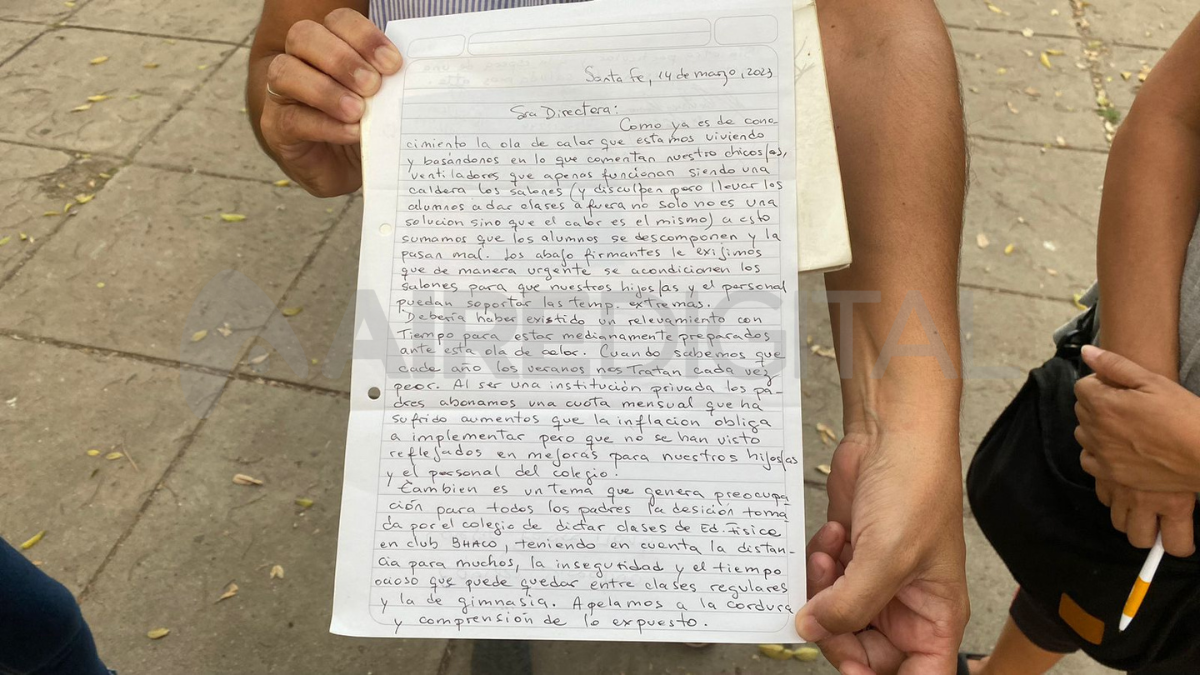 Santa Fe, 14 de marzo, 2023
Sra Directora:
Como ya es de cono-
cimiento la ola de calor que estamos viviendo
y basándonos en lo que comentan nuestro chicos/as,
ventiladores que apenas funcionan siendo una
caldera los salones (y disculpen pero llevar los
alumnos a dar clases a fuera no solo no es una
solucion sino que el calor es el mismo) a esto
sumamos que los alumnos se descomponen y la
pasan mal. Los abajo firmantes le exijimos
que de manera urgente se acondicionen los
salones para que nuestros hijos/as y el personal
puedan soportar las temp. extremas.
Debería haber existido un relevamiento con
Tiempo para estar medianamente preparados
ante esta ola de calor. Cuando sabemos que
cada año los veranos nos Tratan cada vez
peor. Al ser una institución privada los pa-
dres abonamos una cuota mensual que ha
sufrido aumentos que la inflacion obliga
a implementar pero que no se han visto
reflejados en mejoras para nuestros hijos/as
y el personal del colegio.
Tambien es un tema que genera preocupa-
ción para todos los padres la desición toma
da por el colegio de dictar clases de Ed. Fisica
en club BHACO, teniendo en cuenta la distan-
cia para muchos, la inseguridad y el tiempo
ocioso que puede quedar entre clases regulares
y la de gimnasia. Apelamos a la cordura
y comprension de lo expuesto.
AIREDIGITAL